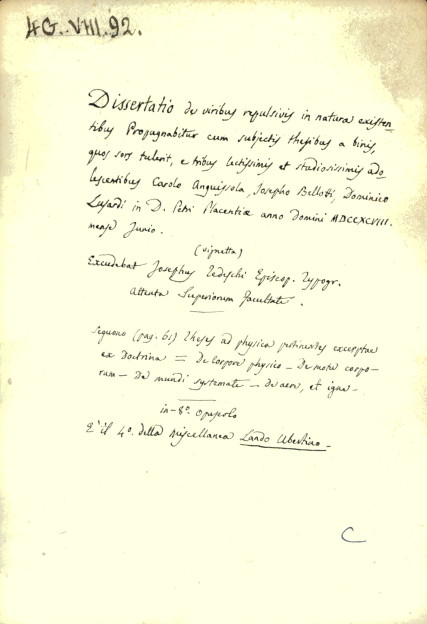 4G. VIII. 92.
Dissertatio de viribus repulsivis in natura existen-
tibus Propugnabitur cum subjectis thesibus a binis,
quos sors tulerit, e tribus lectissimis et studiosissimis ado-
lescentibus Carolo Anguissola, Josepho Bellotti, Dominico
Lusardi in D. Petri Placentiæ anno Domini MDCCXCVIII.
mense Junio.
(vignetta)
Excudebat Josephus Tedeschi Episcop. Typogr.
Attenta Superiorum facultate.
Seguono (pag. 61) Theses ad physicam pertinentes excerptae
ex Doctrina = De Corpore physico - De motu corpo-
rum - De mundi systemate - De aere, et igne -
in-8º. Opuscolo
E' il 4º. della Miscellanea Lando Ubertino -
C